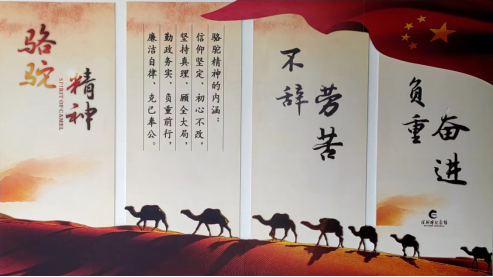 骆驼
精神
SPIRIT OF CAMEL
骆驼精神的内涵：
信仰坚定，初心不改，
坚持真理，顾全大局，
勤政务实，负重前行，
廉洁自律，克己奉公。
不辞
劳苦
负重
奋进